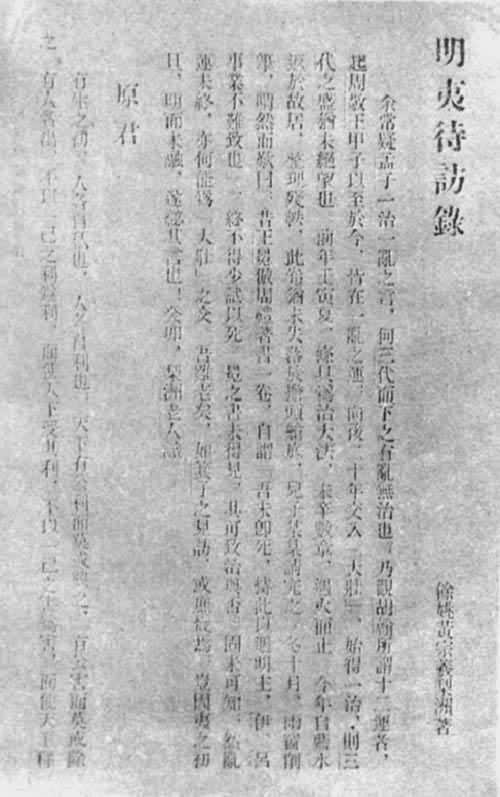 明夷待訪錄
餘姚黃宗羲梨洲著
余常疑孟子一治一亂之言，何三代而下之有亂無治也。乃觀胡翰所謂十二運者，
起周敬王甲子以至於今，皆在一亂之運，向後二十年交入「大壯」，始得一治，則三
代之盛猶未絕望也。前年壬寅夏，條具為治大法，未卒數章，遇火而止。今年自藍水
返於故居，整理殘帙，此卷猶未失落於擔頭艙底，兒子某某請完之。冬十月，雨窗削
筆，喟然而歎曰：昔王冕倣周禮著書一卷，自謂「吾未即死，持此以遇明主，伊、呂
事業不難致也」，終不得少試以死。冕之書未得見，其可致治與否，固未可知。然亂
運未終，亦何能為「大壯」之交，吾雖老矣，如箕子之見訪，或庶幾焉。豈因夷之初
旦，明而未融，遂秘其言也！癸卯，梨洲老人識
原君
有生之初，人各自私也，人各自利也，天下有公利而莫或興之，有公害而莫或除
之。有人者出，不以一己之利為利，而使天下受其利，不以一己之害為害，而使天下釋